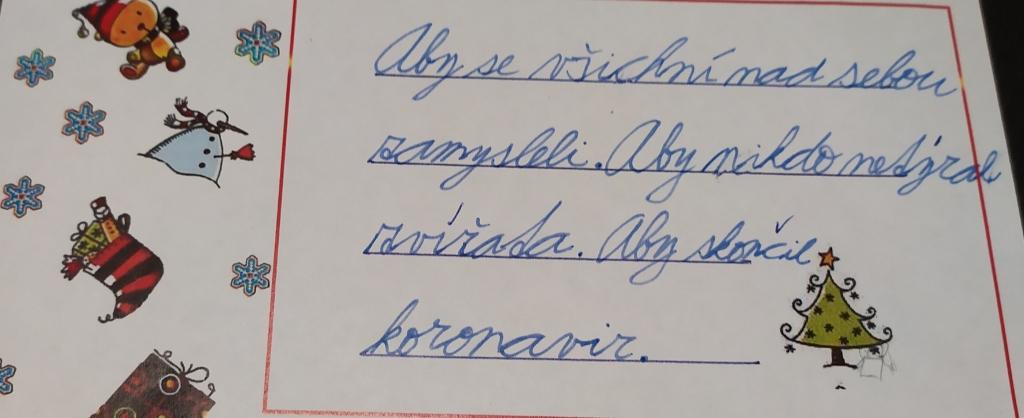 Aby se všichní nad sebou
zamysleli. Aby nikdo netýral
zvířata. Aby skončil
koronavir.